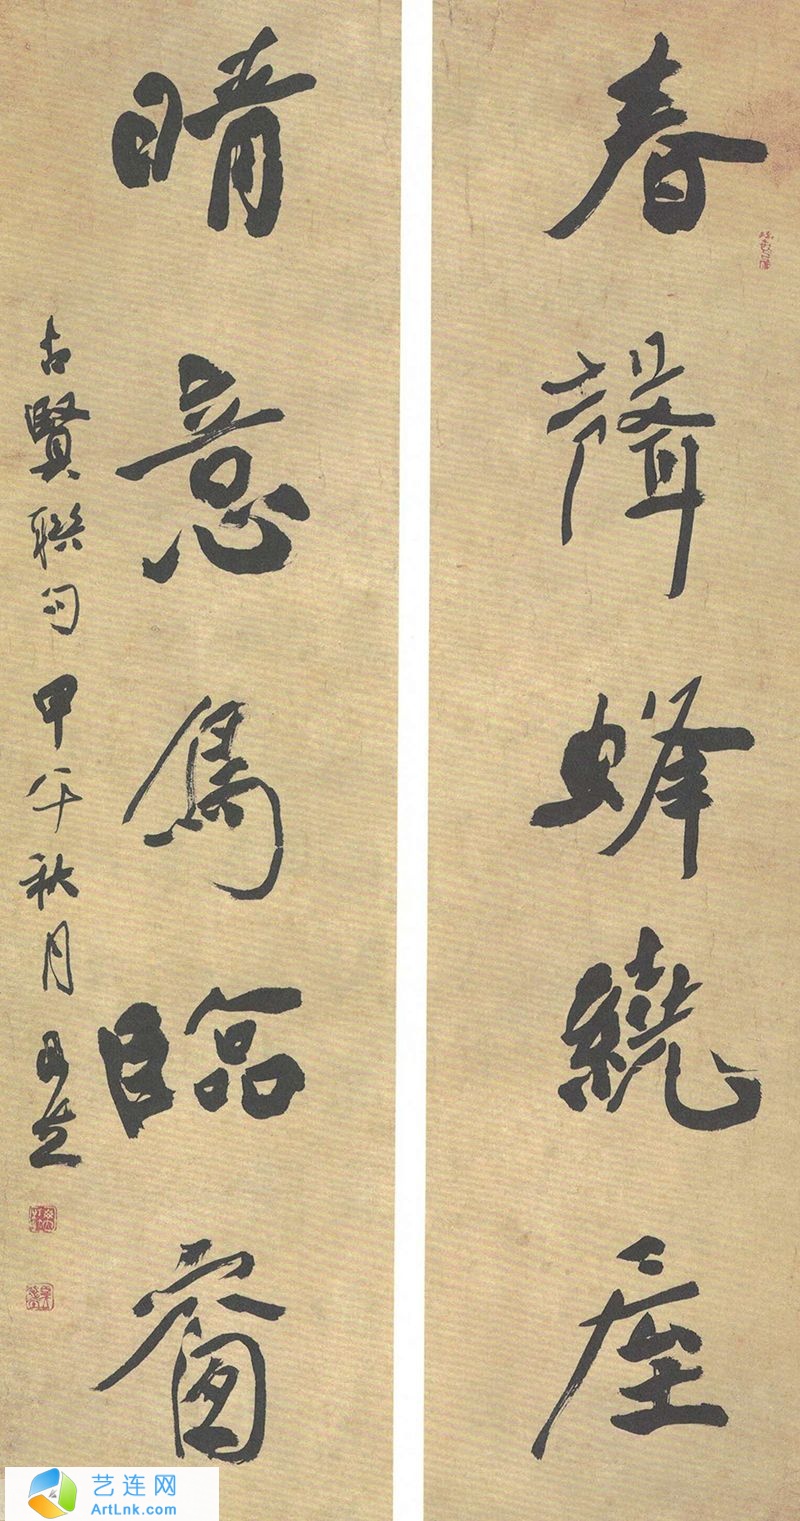 春聲蜂繞屋
晴意鳥臨窗
古賢聯句 甲午秋月
艺连网
ArtLnk.com